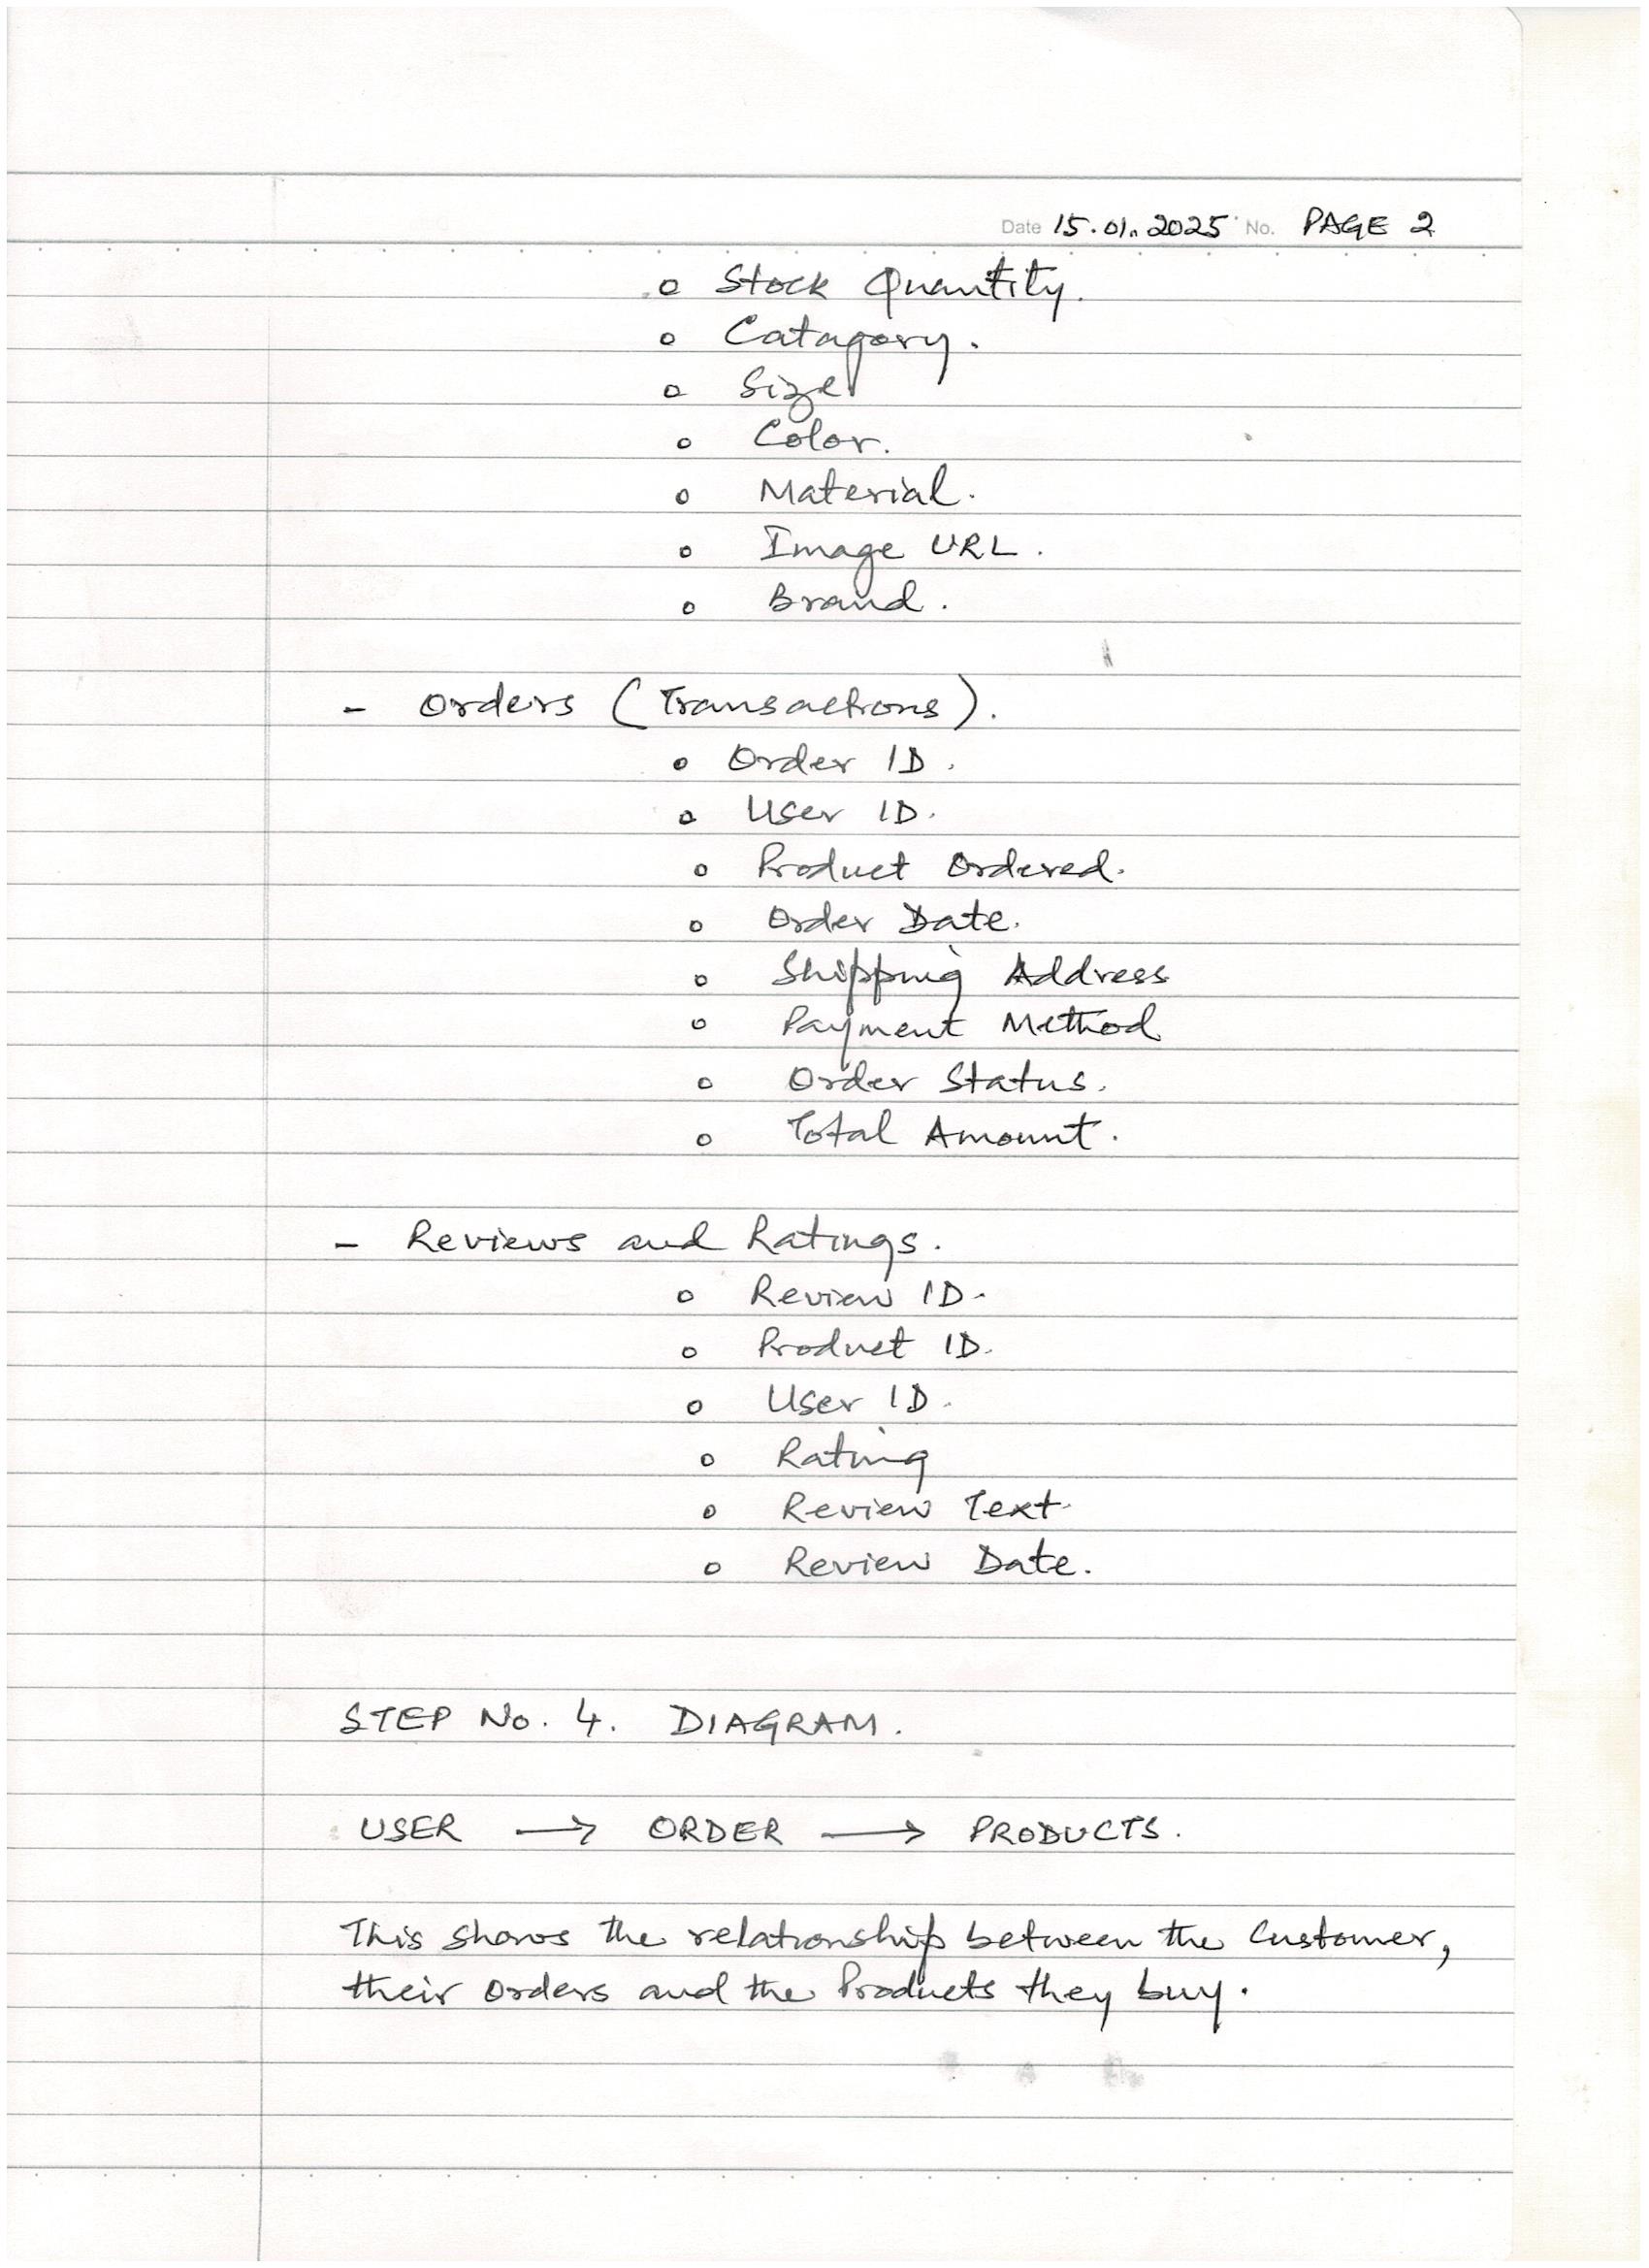 Date 15.01.2025 No. PAGE 2
o Stock Quantity.
o Catagory.
o Size
o Color.
o Material.
o Image URL.
o Brand.
- Orders (Transactions).
o Order ID.
o User ID.
o Product Ordered.
o Order Date.
o Shipping Address
o Payment Method
o Order Status.
o Total Amount.
- Reviews and Ratings.
o Review ID.
o Product ID.
o User ID.
o Rating
o Review Text.
o Review Date.
STEP No. 4. DIAGRAM.
USER → ORDER → PRODUCTS.
This shows the relationship between the Customer,
their Orders and the Products they buy.